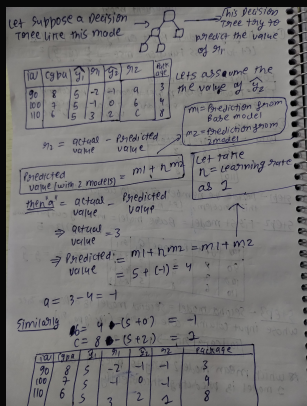 Let Suppose a Decision
Tree like this made
This Decision
Tree try to
predict the value
of r1
IQ CGPA ŷ1 r1 ŷ2 r2
90 8 5 -2 -1 a 3
100 7 5 -1 0 b 4
110 6 5 3 2 c 8
Let's assume the
the value of ŷ2
m1 = Prediction from
Base model
m2 = Prediction from
2model
r2 = actual value - Predicted value
Predicted value (with 2 models) = m1 + n m2
Let take
n = learning rate
as 1
then "a" = actual value - Predicted value
⇒ actual value = 3
⇒ Predicted value = m1 + n m2 = m1 + m2
= 5 + (-1) = 4
a = 3 - 4 = -1
Similarly
b = 4 - (5+0) = -1
c = 8 - (5+2) = 1
IQ CGPA y1 r1 y2 r2 Package
90 8 5 -2 -1 -1 3
100 7 5 -1 0 -1 4
110 6 5 3 2 1 8